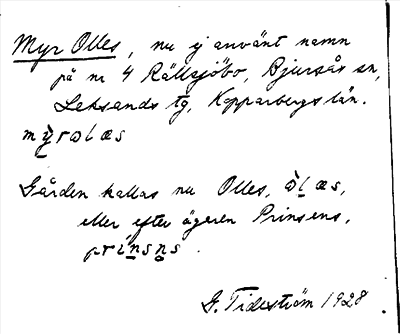 Myr Olles, nu ej använt namn
på nr 4 Rällsjöbo, Bjursås sn,
Leksands tg, Kopparbergs län.
my�the̊rωlæs
Gården kallas nu Olles, ὼlæs,
eller efter ägaren Prinsens,
prínsn̥s.
G. Tideström 1928